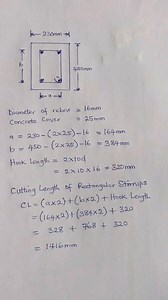 230mm
b
450mm
a
Diameter of rebar = 16mm
Concrete Cover = 25mm
a = 230-(2x25)-16 = 164mm
b = 450-(2x25)-16 = 384mm
Hook Length = 2x10d
= 2x10x16 = 320mm
Cutting Length of Rectangular Stirrups
CL = (ax2)+(bx2)+ Hook Length
= (164x2)+(384x2)+ 320
= 328 + 768 + 320
= 1416mm